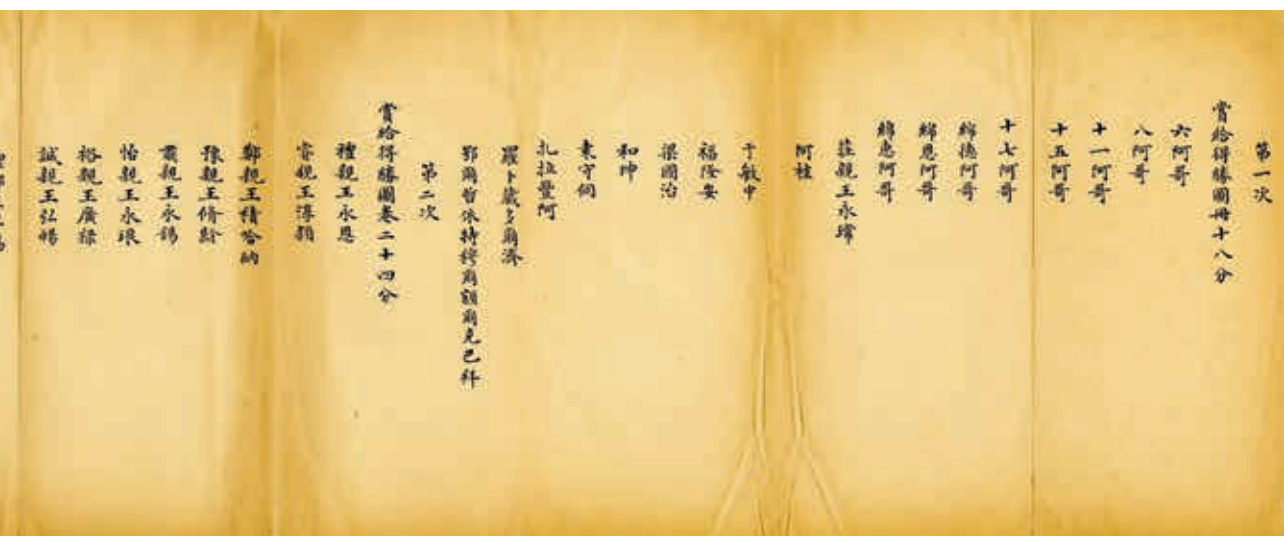 第一次
賞給得勝圖冊十八分
六阿哥
八阿哥
十一阿哥
十五阿哥
十七阿哥
綿德阿哥
綿恩阿哥
綿惠阿哥
莊親王永瑺
阿桂
于敏中
福隆安
梁國治
和珅
袁守侗
扎拉豐阿
羅卜藏多爾濟
鄂爾哲依特穆爾額爾克巴拜
第二次
賞給得勝圖卷二十四分
禮親王永恩
睿親王淳穎
鄭親王積哈納
豫親王脩齡
肅親王永錫
怡親王永琅
裕親王廣祿
諴親王弘暢